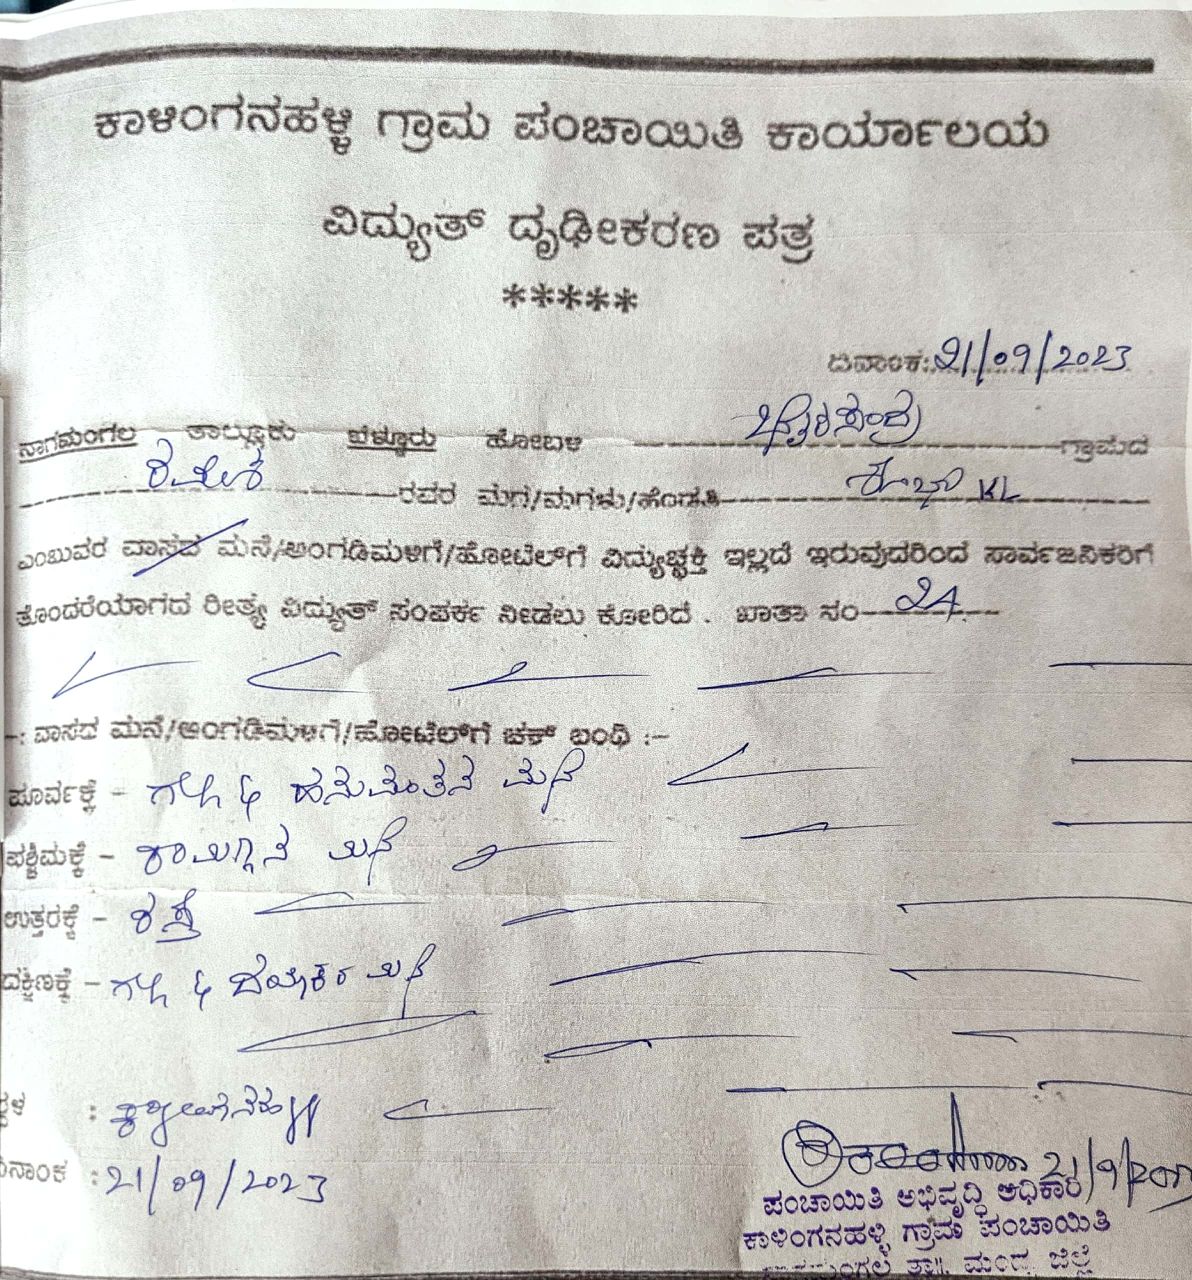 ಕಾಳಿಂಗನಹಳ್ಳಿ ಗ್ರಾಮ ಪಂಚಾಯಿತಿ ಕಾರ್ಯಾಲಯ
ವಿದ್ಯುತ್ ದೃಢೀಕರಣ ಪತ್ರ
*****
ದಿನಾಂಕ: 21/09/2023
ನಾಗಮಂಗಲ ತಾಲ್ಲೂಕು ಬೆಳ್ಳೂರು ಹೋಬಳಿ ಗ್ರಾಮದ
ರಮೇಶ ರವರ ಮಗ/ಮಗಳು/ಹೆಂಡತಿ KL
ಎಂಬುವರ ವಾಸದ ಮನೆ/ಅಂಗಡಿಮಳಿಗೆ/ಹೋಟೆಲ್‌ಗೆ ವಿದ್ಯುಚ್ಛಕ್ತಿ ಇಲ್ಲದೆ ಇರುವುದರಿಂದ ಸಾರ್ವಜನಿಕರಿಗೆ
ತೊಂದರೆಯಾಗದ ರೀತ್ಯ ವಿದ್ಯುತ್ ಸಂಪರ್ಕ ನೀಡಲು ಕೋರಿದೆ . ಖಾತಾ ಸಂ 24
-: ವಾಸದ ಮನೆ/ಅಂಗಡಿಮಳಿಗೆ/ಹೋಟೆಲ್‌ಗೆ ಚಕ್ ಬಂಧಿ :-
ಪೂರ್ವಕ್ಕೆ - ಗಲ್ಲಿ & ಹನುಮಂತನ ಮನೆ
ಪಶ್ಚಿಮಕ್ಕೆ - ಮನೆ
ಉತ್ತರಕ್ಕೆ - ರಸ್ತೆ
ದಕ್ಷಿಣಕ್ಕೆ - ಗಲ್ಲಿ & ಮನೆ
21/09/2023
21/9/2023
ಪಂಚಾಯಿತಿ ಅಭಿವೃದ್ಧಿ ಅಧಿಕಾರಿ
ಕಾಳಿಂಗನಹಳ್ಳಿ ಗ್ರಾಮ ಪಂಚಾಯಿತಿ
ನಾಗಮಂಗಲ ತಾ॥. ಮಂಡ್ಯ ಜಿಲ್ಲೆ